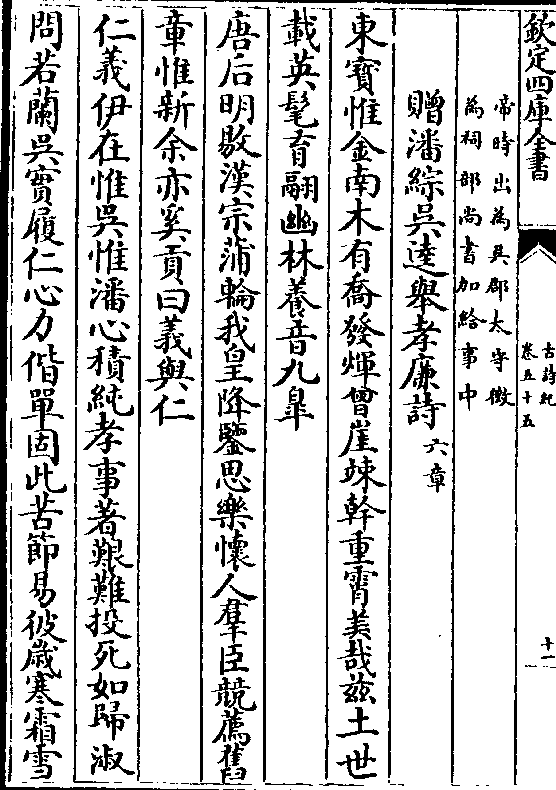 欽定四庫全書
古詩紀
卷五十五
十一
帝時出為吳郡太守徵
為祠部尚書加給事中
贈潘綜吳逵舉孝廉詩六章
東寳惟金南木有喬發煇曾崖竦幹重霄美哉兹土世
載英髦育翮幽林養音九臯
唐后明敭漢宗蒲輪我皇降鑒思樂懷人羣臣競薦舊
章惟新余亦奚貢曰義與仁
仁義伊在惟吳惟潘心積純孝事著艱難投死如歸淑
問若蘭吳實履仁心力偕單固此苦節易彼歲寒霜雪